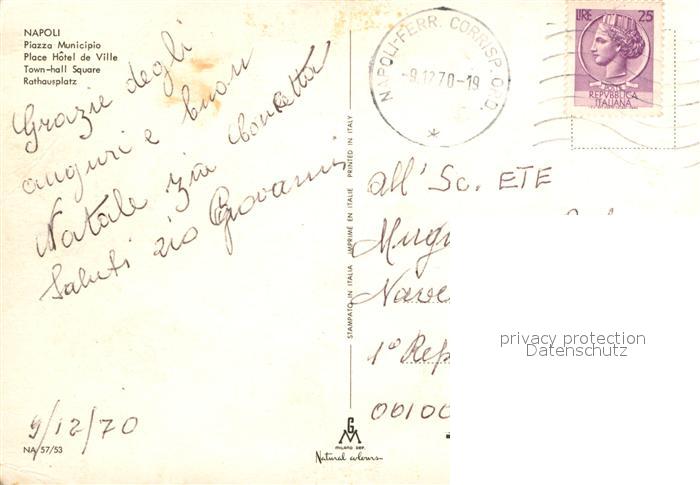 NAPOLI
Piazza Municipio
Place Hôtel de Ville
Town-hall Square
Rathausplatz
Grazie degli
auguri e buon
Natale zia Concetta
Saluti zio Giovanni
9/12/70
NA/57/53
STAMPATO IN ITALIA IMPRIMÉ EN ITALIE PRINTED IN ITALY
MILANO DEP.
Natural colours
NAPOLI-FERR. CORRISP. ORD.
-9.12.70-19
LIRE 25
REPVBBLICA
ITALIANA
all' Sc. ETE
1° Rep
00100
privacy protection
Datenschutz